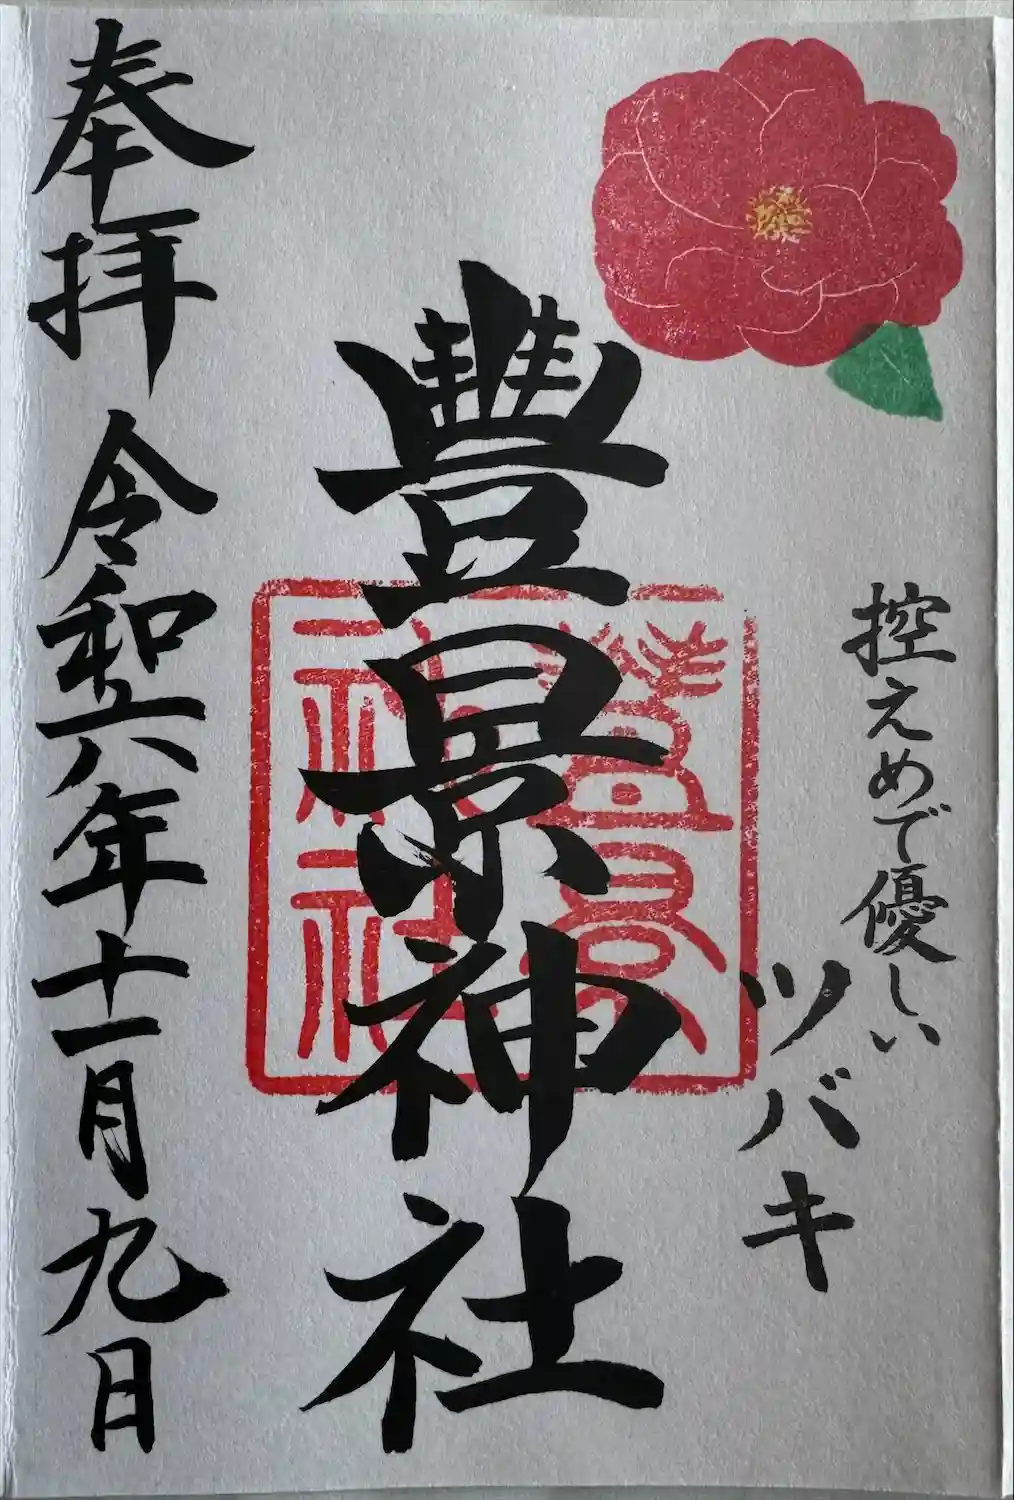 控えめで優しい
ツバキ
豊景神社
豊景神社
奉拝 令和六年十一月九日